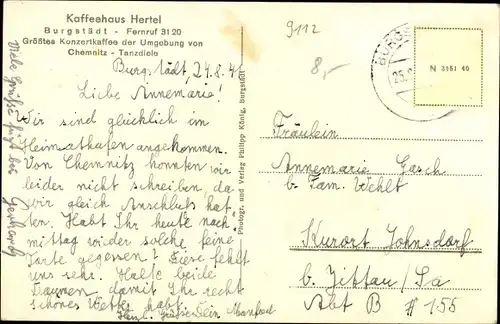 Kaffeehaus Hertel
Burgstädt - Fernruf 3120
Größtes Konzertkaffee der Umgebung von
Chemnitz - Tanzdiele
9112
8,-
N 3151 40
Burgstädt, 24.8.41
Liebe Annemarie!
Wir sind glücklich im
Heimathafen angekommen.
Von Chemnitz konnten wir
leider nicht schreiben, da
wir gleich Anschluß hat-
ten. Habt Ihr heute nach-
mittag wieder solche feine
Torte gegessen? Diese fehlt
uns sehr. Halte beide
Daumen, damit Ihr recht
schönes Wetter habt.
Herzl. Grüße Dein Manfred
Viele Grüße
Photogr. und Verlag Philipp König, Burgstädt
Fräulein
Annemarie Gasch
b. Fam. Wehlt
Kurort Johnsdorf
b. Zittau/Sa
Abt B # 155